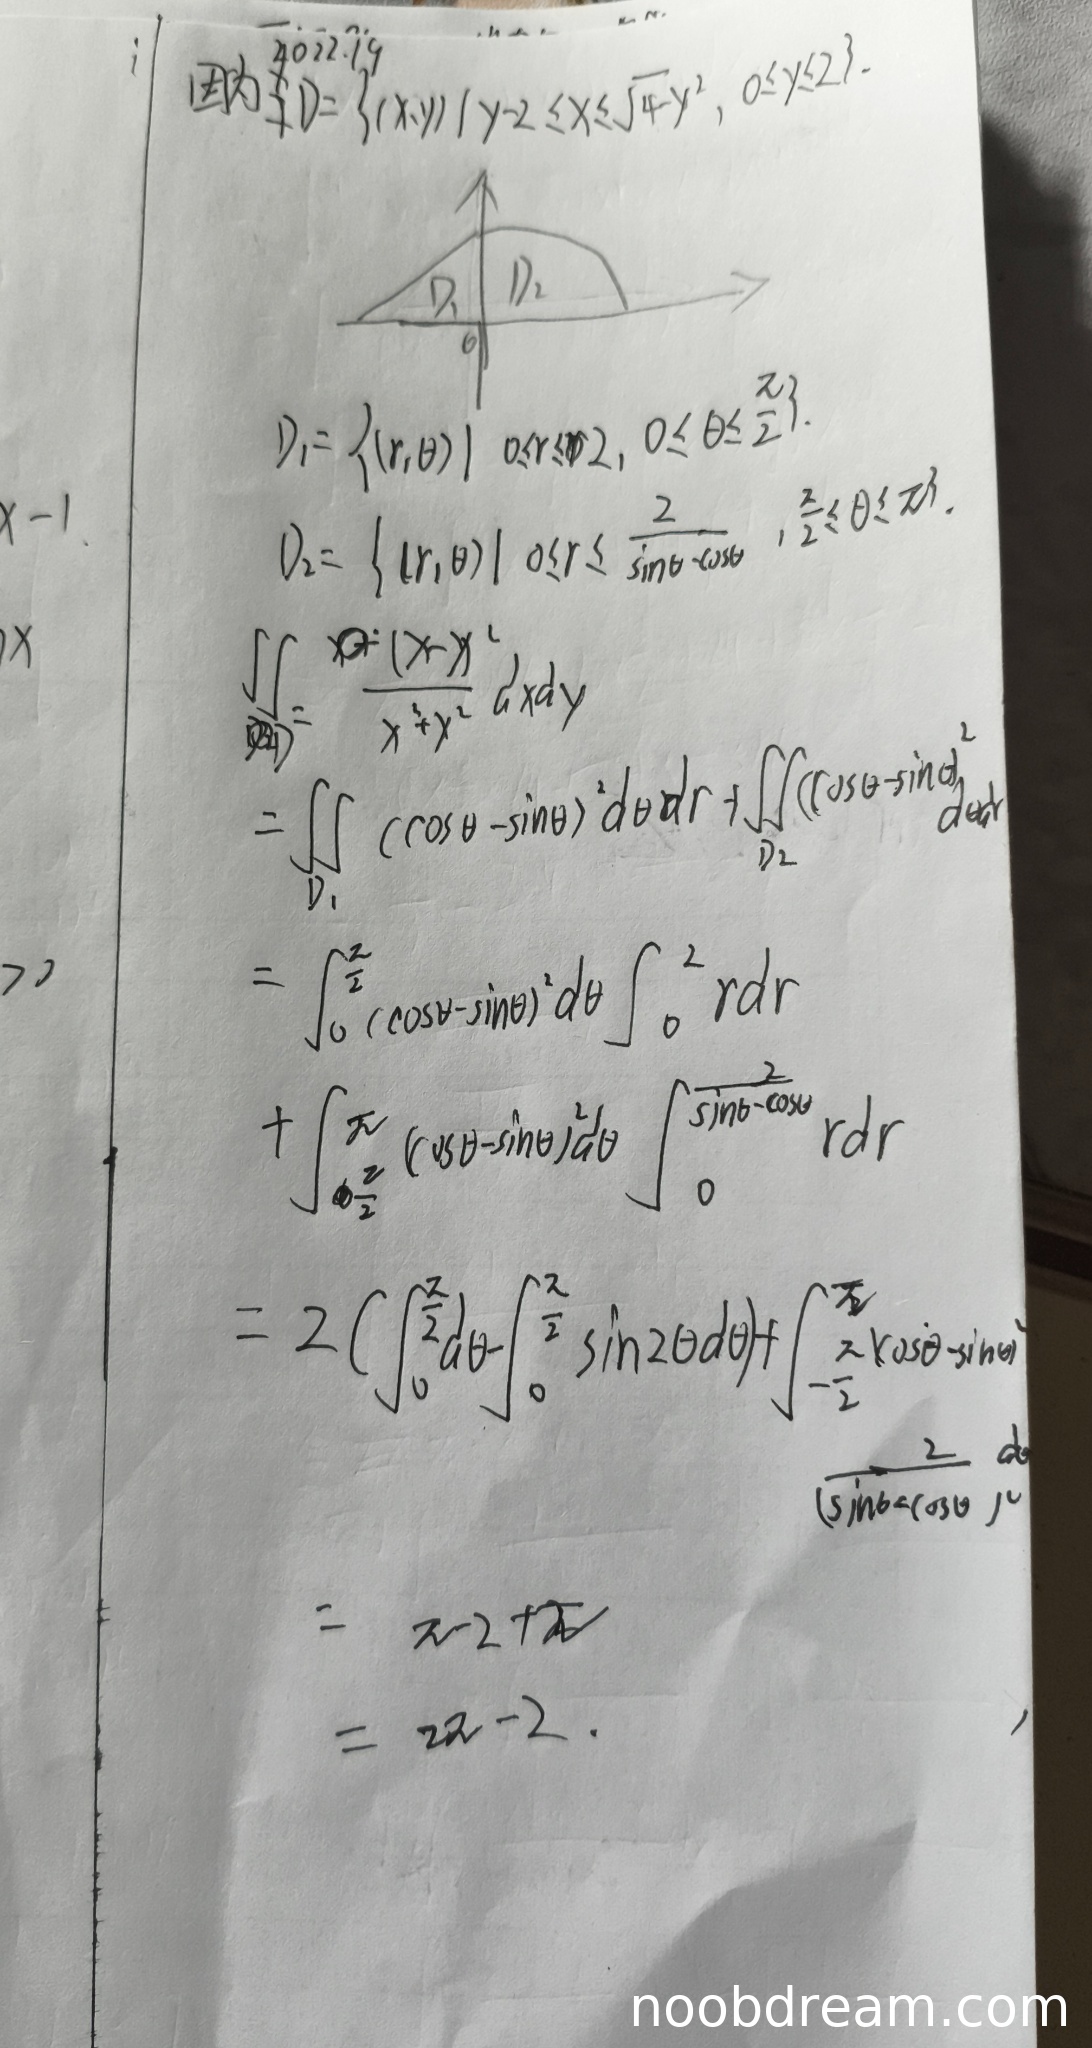 2022.19
因为 D={(x,y)|y-2≤x≤√4-y², 0≤y≤2}.
D₁ D₂
0
D₁={(r,θ)| 0≤r≤2, 0≤θ≤π/2}.
x-1
D₂={(r,θ)| 0≤r≤2/(sinθ-cosθ), π/2≤θ≤π}.
x
∬ (x-y)²/(x²+y²) dxdy
=∬D₁ (cosθ-sinθ)²dθdr+∬D₂(cosθ-sinθ)²dθdr
=∫₀^(π/2)(cosθ-sinθ)²dθ∫₀² rdr
+∫_(π/2)^π (cosθ-sinθ)²dθ∫₀^(2/(sinθ-cosθ)) rdr
=2(∫₀^(π/2)dθ-∫₀^(π/2) sin2θdθ)+∫_(-π/2)^π (cosθ-sinθ)²
2/(sinθ-cosθ)² dθ
= π-2+π
= 2π-2.
noobdream.com